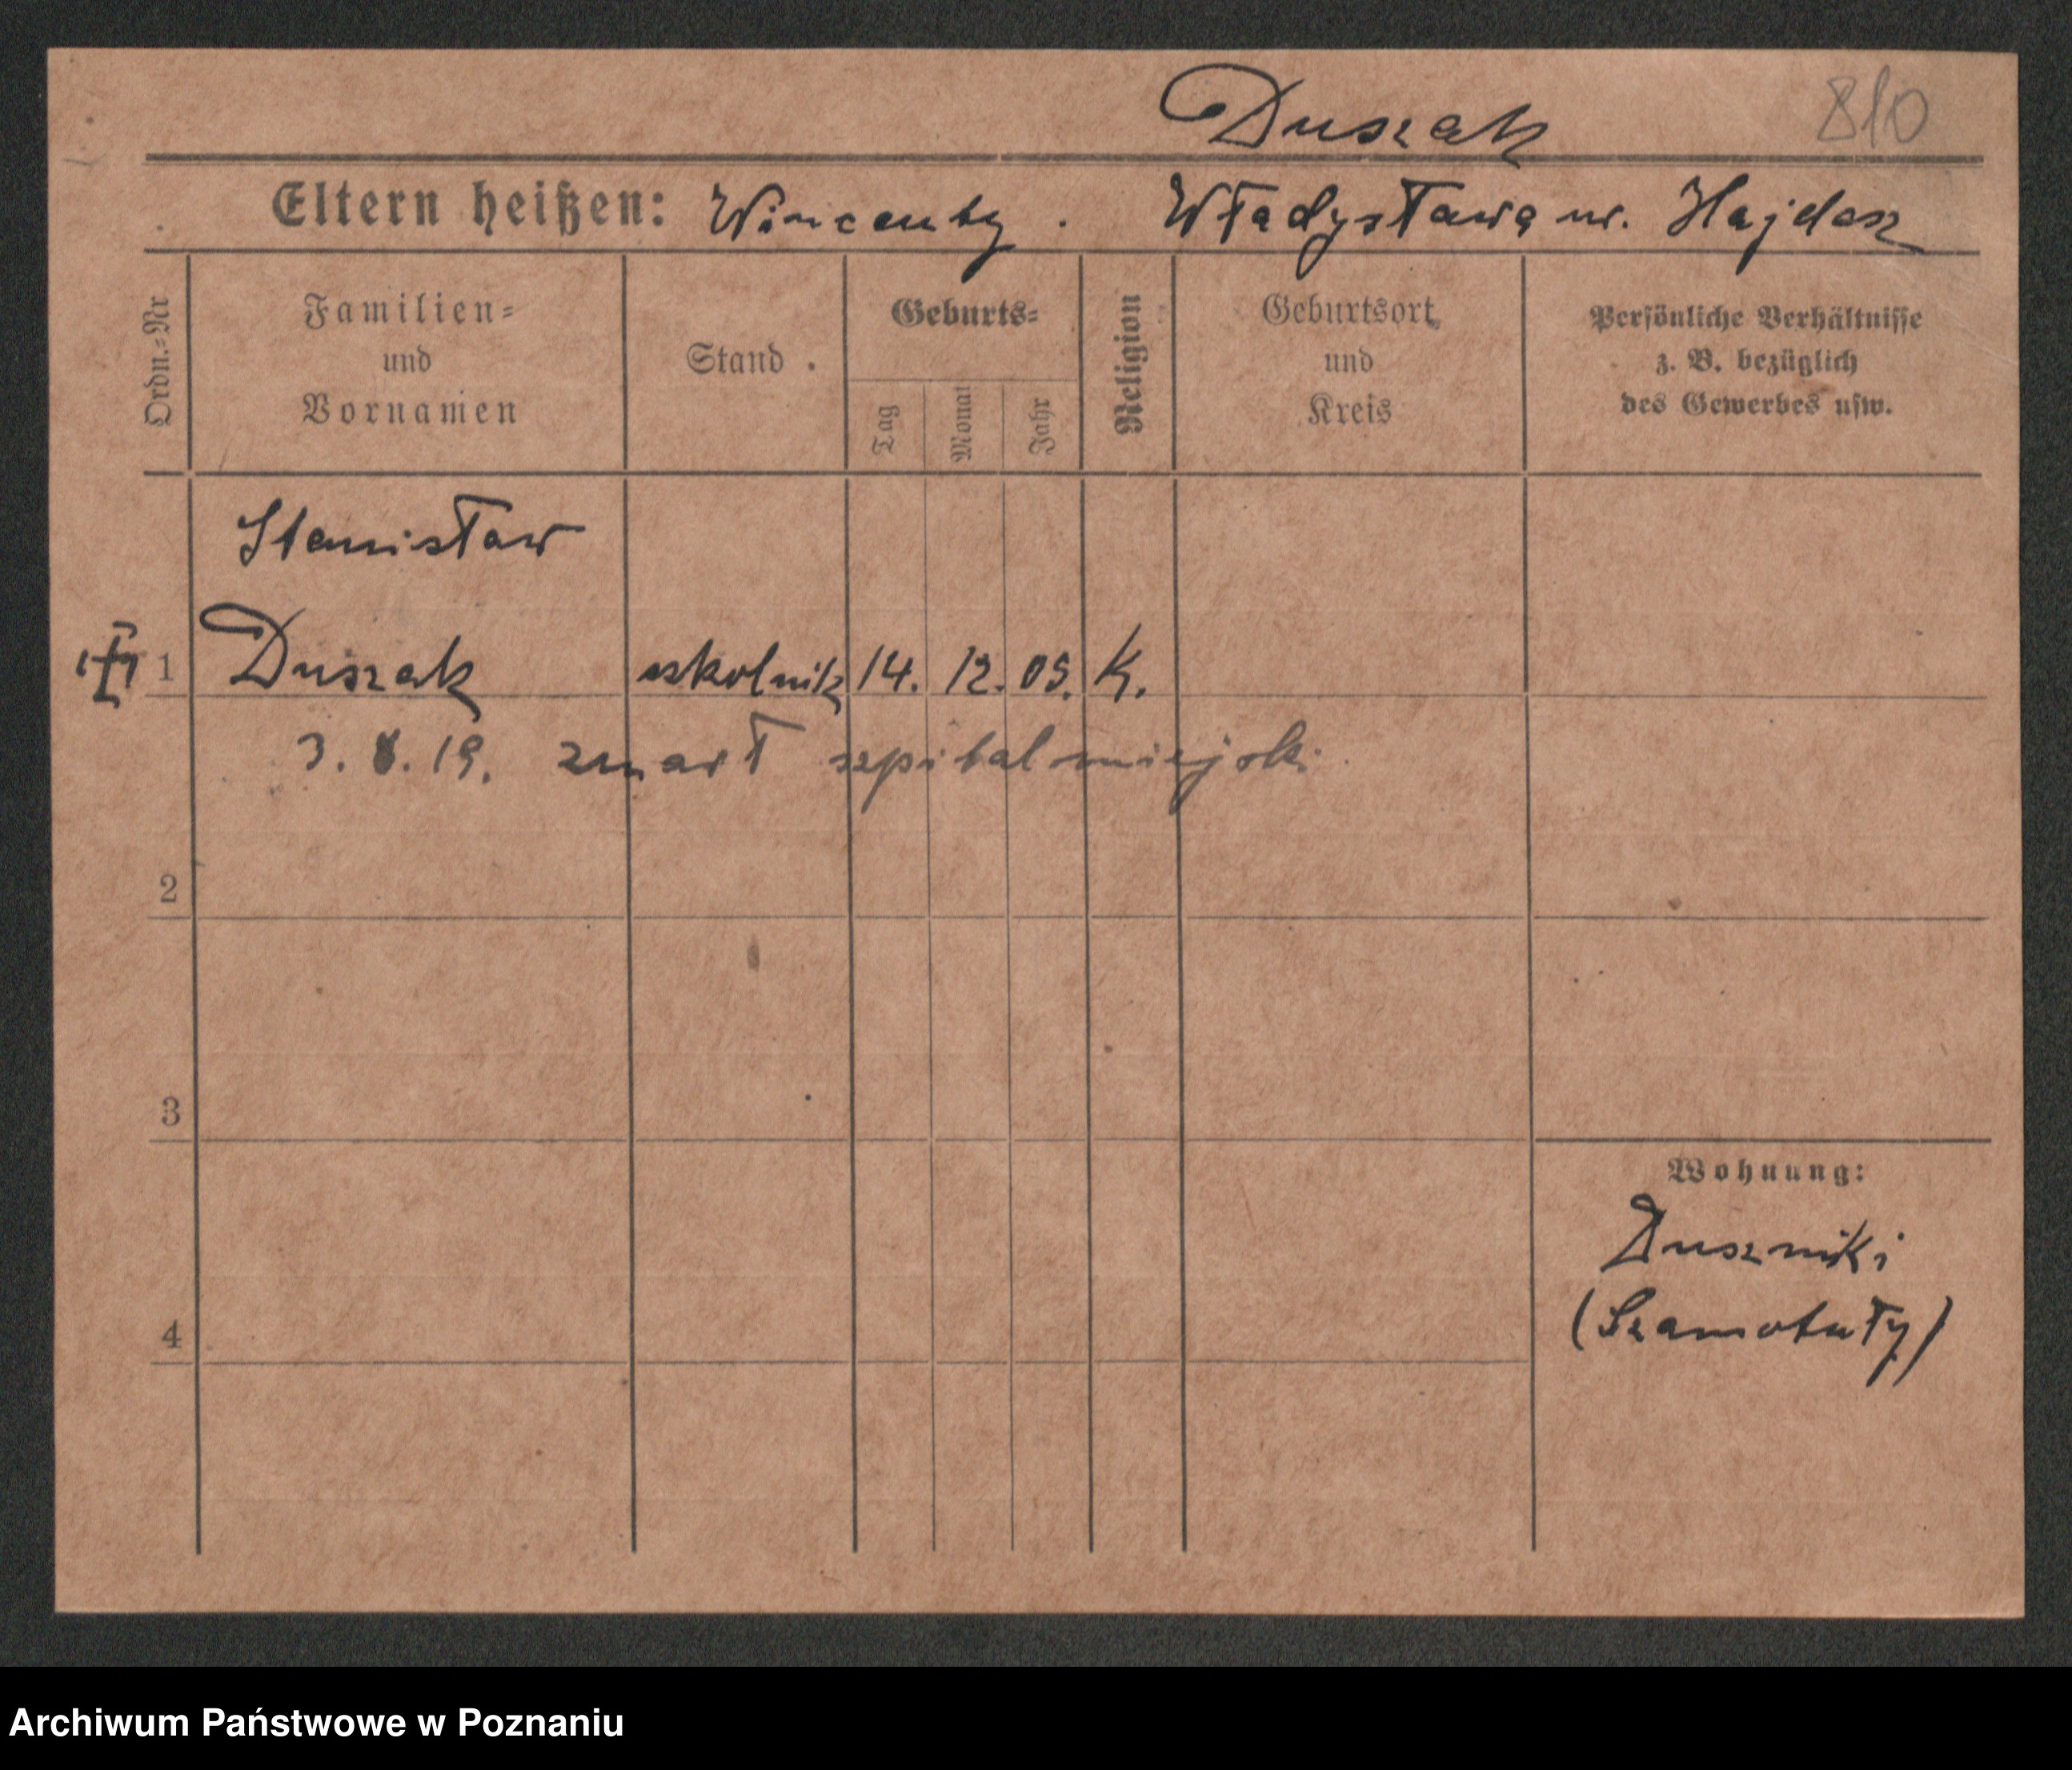 Duszak 810
Eltern heißen: Wincenty. Władysława ur. Hajdasz
Ordn.-Nr
Familien-
und
Vornamen
Stand.
Geburts-
Tag
Monat
Jahr
Religion
Geburtsort
und
Kreis
Persönliche Verhältnisse
z. B. bezüglich
des Gewerbes usw.
Stanisław
1 Duszak szkolnik 14. 12. 05. K.
3. 8. 19. zmarł szpital miejski.
2
3
4
Wohnung:
Duszniki
(Szamotuły)
Archiwum Państwowe w Poznaniu